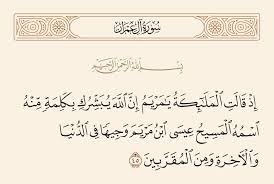 سورة آل عمران
بسم الله الرحمن الرحيم
إِذْ قَالَتِ الْمَلَٰٓئِكَةُ يَٰمَرْيَمُ إِنَّ اللَّهَ يُبَشِّرُكِ بِكَلِمَةٍ مِّنْهُ
اسْمُهُ الْمَسِيحُ عِيسَى ابْنُ مَرْيَمَ وَجِيهًا فِي الدُّنْيَا
وَالْآخِرَةِ وَمِنَ الْمُقَرَّبِينَ ٤٥